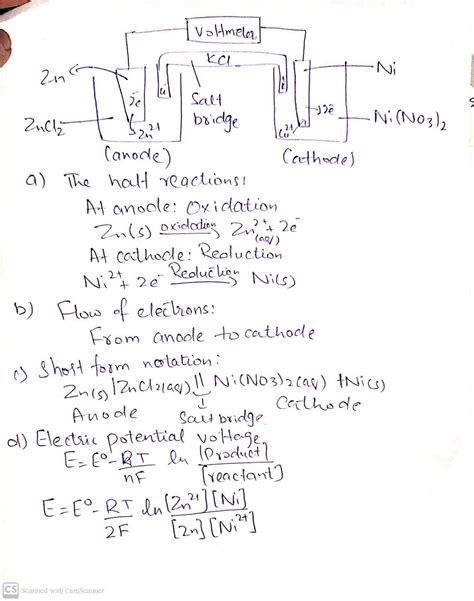 Voltmeter
KCl
Zn
Ni
2e⁻
Salt
bridge
2e⁻
ZnCl2
Zn2+
Ni(NO3)2
(anode)
(Cathode)
a) The half reactions:
At anode: Oxidation
Zn(s) oxidation Zn2+(aq) + 2e⁻
At cathode: Reduction
Ni2+ + 2e⁻ Reduction Ni(s)
b) Flow of electrons:
From anode to cathode
c) Short form notation:
Zn(s) | ZnCl2(aq) || Ni(NO3)2(aq) + Ni(s)
Anode Salt bridge Cathode
d) Electric potential voltage
E = E° - RT/nF ln [Product]/[reactant]
E = E° - RT/2F ln [Zn2+][Ni]/[Zn][Ni2+]
CS Scanned with CamScanner